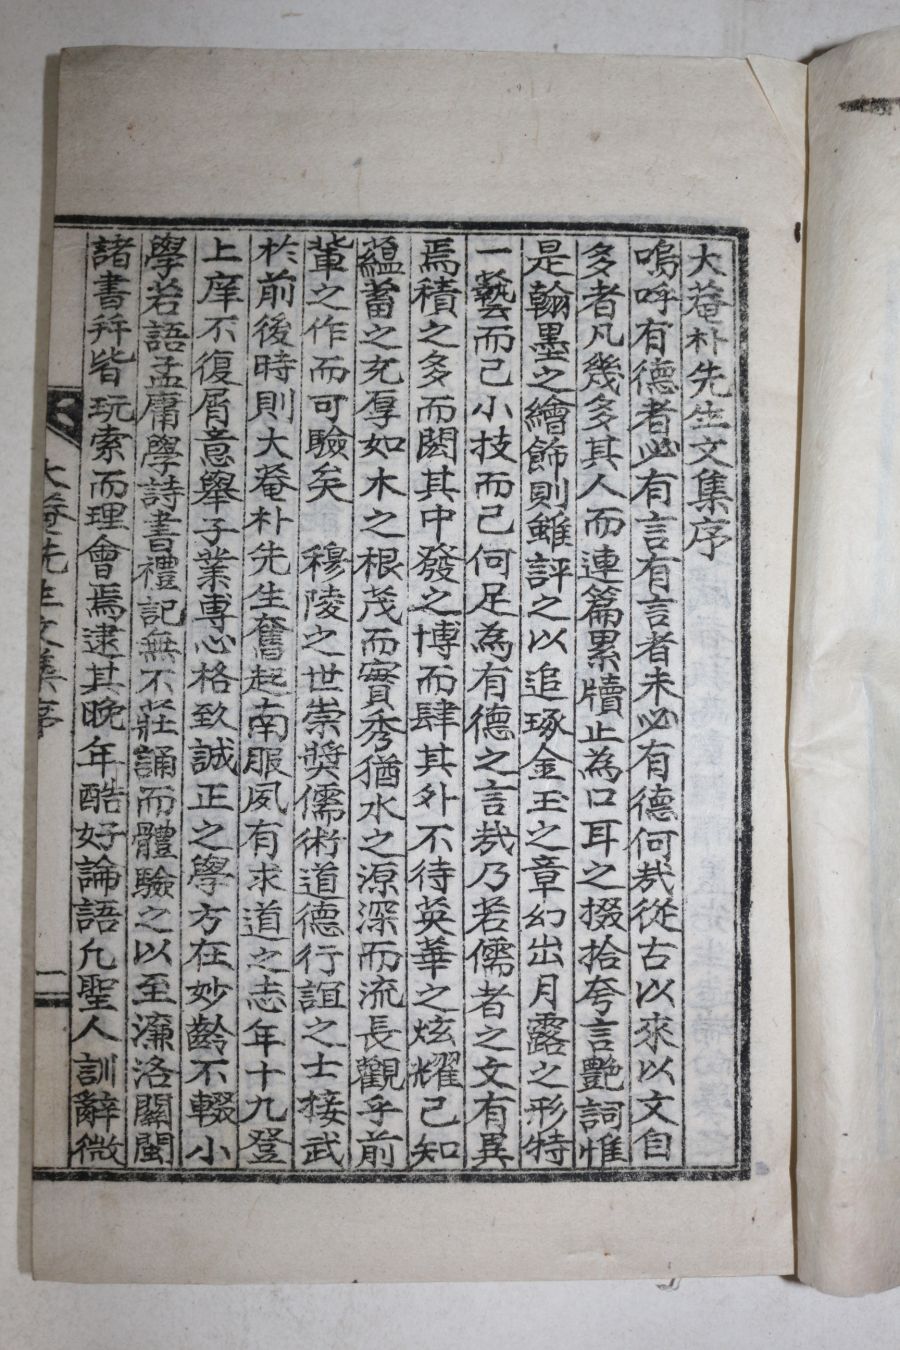 大菴朴先生文集序
嗚呼有德者必有言有言者未必有德何㢤從古以來以文自
多者凡幾多其人而連篇累牘止為口耳之掇拾夸言艶詞惟
是翰墨之繪飾則雖評之以追琢金玉之章幻出月露之形特
一藝而已小技而已何足為有德之言㢤乃若儒者之文有異
焉積之多而閎其中發之博而肆其外不待英華之炫耀已知
蘊蓄之充厚如木之根茂而實秀猶水之源深而流長觀乎前
軰之作而可驗矣 穆陵之世崇奬儒術道德行誼之士接武
於前後時則大菴朴先生奮起南服夙有求道之志年十九登
上庠不復屑意擧子業專心格致誠正之學方在妙齡不輟小
學若語孟庸學詩書禮記無不莊誦而體驗之以至濂洛關閩
諸書幷皆玩索而理會焉逮其晩年酷好論語凢聖人訓辭微
大菴先生文集序
一